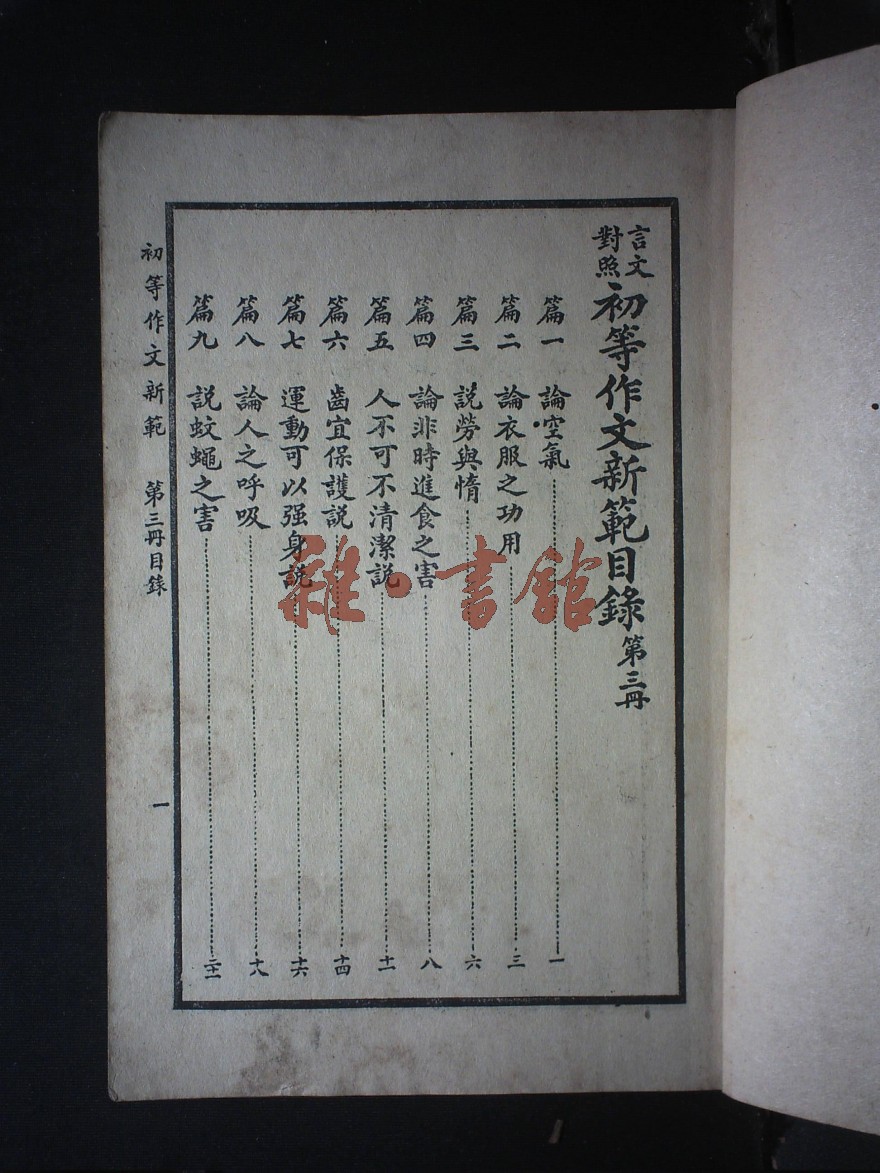 言文對照初等作文新範目錄 第三冊
篇一 論空氣 一
篇二 論衣服之功用 三
篇三 說勞與惰 六
篇四 論非時進食之害 八
篇五 人不可不清潔說 十一
篇六 齒宜保護說 十四
篇七 運動可以强身說 十六
篇八 論人之呼吸 十八
篇九 說蚊蠅之害 二十一
初等作文新範 第三冊目錄 一
雜·書館